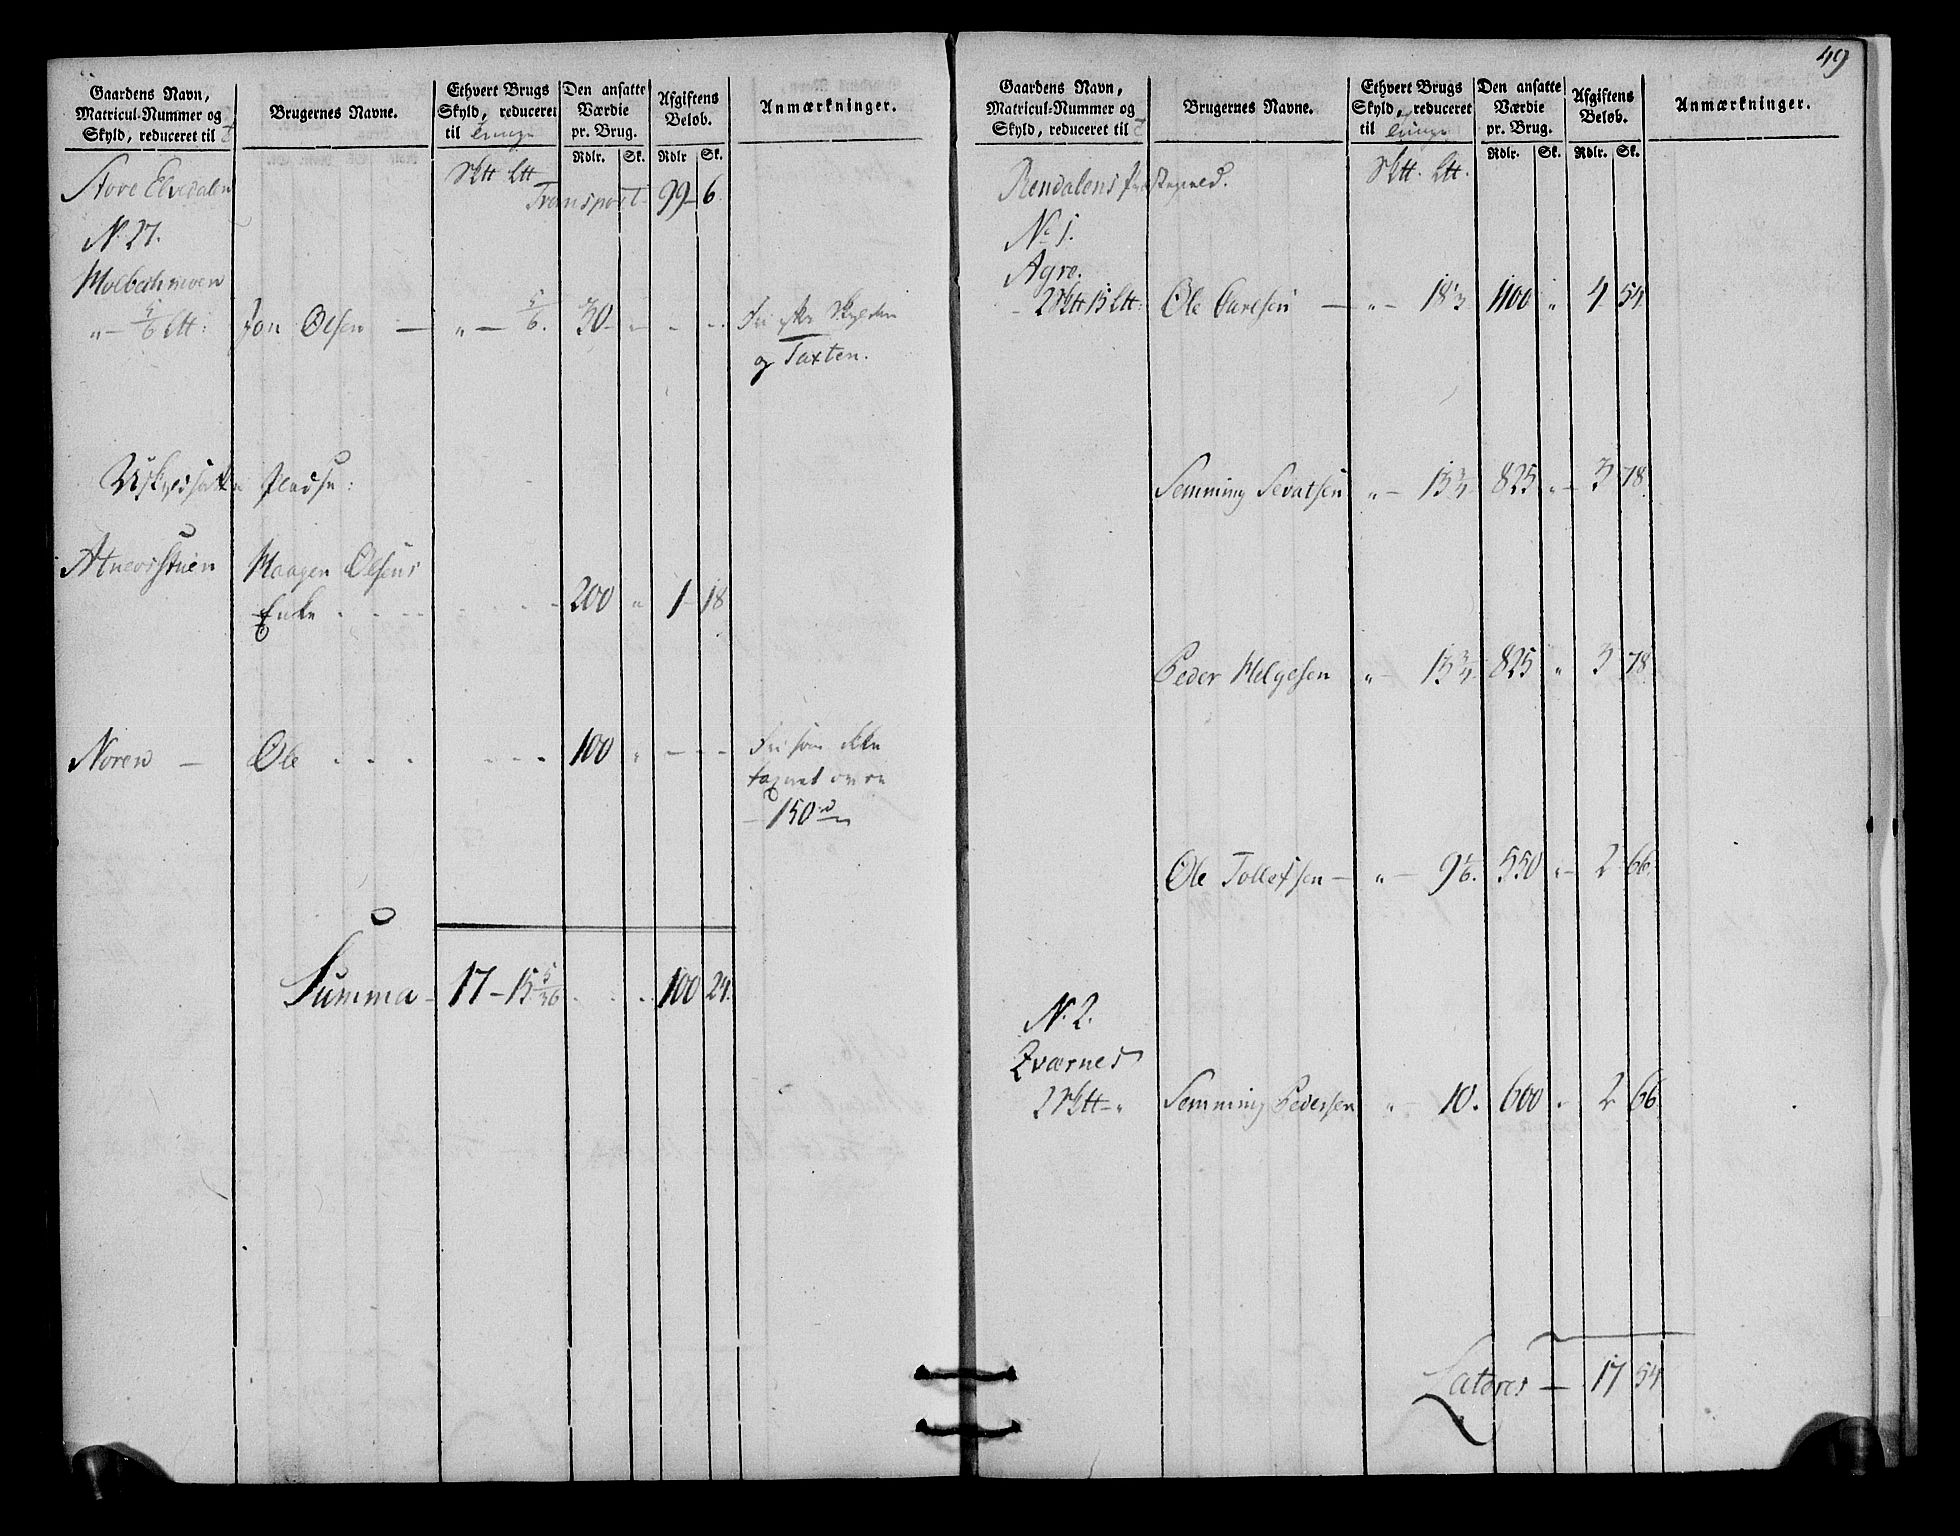 49
Gaardens Navn,
Matricul-Nummer og
Skyld, reduceret til
Brugernes Navne.
Ethvert Brugs
Skyld, reduceret
til Tunge
Den ansatte
Værdie
pr. Brug.
Rdlr. Sk.
Afgiftens
Beløb.
Rdlr Sk.
Anmærkninger.
Store Elvedalen
Transport 99 - 6.
N. 27.
Molbechmoen
" - 5/6 Ltt: Jon Olsen — " — 5/6. 30 - " - - - Fri efter Skylden
og Taxten.
Uskyldsatte Pladse:
Atneosstuen Haagen Olsens
Enke . . . . 200 " 1 - 18
Noren — Ole . . . . . . 100 " — - - Fri som ikke
taxeret over
150
Summa - 17 - 15 5/36 . . . 100 24.
Gaardens Navn,
Matricul-Nummer og
Skyld, reduceret til
Brugernes Navne.
Ethvert Brugs
Skyld, reduceret
til Tunge
Den ansatte
Værdie
pr. Brug.
Rdlr. Sk.
Afgiftens
Beløb.
Rdlr. Sk.
Anmærkninger.
Rendalens Præstegield.
No 1.
Agre.
Ole Carlsen — " - 18 1/3 1100 " 4 54
Semming Sevatsen " — 13 3/4 825 " - 3 78
Peder Helgesen " - 13 3/4 825 " 3 78
Ole Tollefsen — " - 9 1/6. 550 " - 2 66.
N. 2.
Qværnes
Semming Pedersen " - 10. 600 " 2 66
Lateres — 17 54